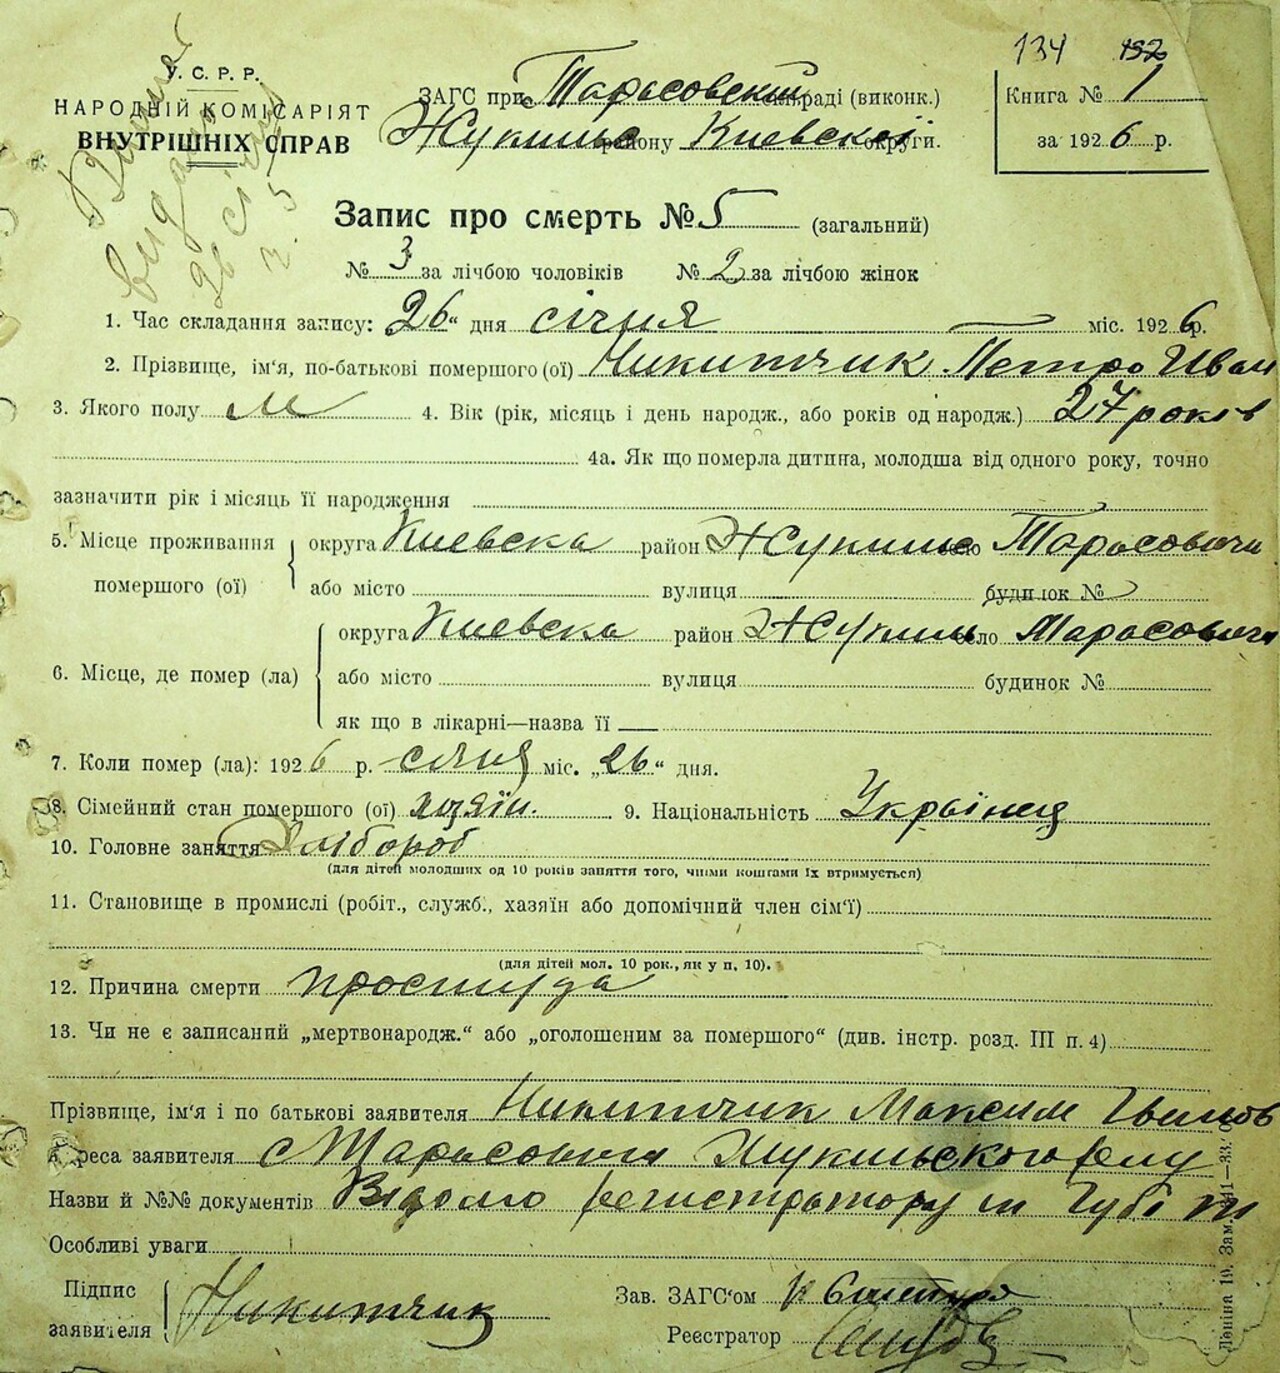 134 132
У. С. Р. Р.
НАРОДНІЙ КОМІСАРІЯТ
ВНУТРІШНІХ СПРАВ
ЗАГС при с Тарасовский сільраді (виконк.)
Жукинсь району Киевскої округи.
Книга № 1
за 1926 р.
Запис про смерть № 5 (загальний)
№ 3 за лічбою чоловіків № 2 за лічбою жінок
1. Час складання запису: „26“ дня січня міс. 1926 р.
2. Прізвище, ім'я, по-батькові помершого (ої) Никитчик Петро Иван
3. Якого полу М 4. Вік (рік, місяць і день народж., або років од народж.) 27 років
4а. Як що померла дитина, молодша від одного року, точно
зазначити рік і місяць її народження
5. Місце проживання помершого (ої) округа Киевска район Жукинсь село Тарасовичи
або місто вулиця будинок №
6. Місце, де помер (ла) округа Киевска район Жукинь село Тарасовичи
або місто вулиця будинок №
як що в лікарні—назва її
7. Коли помер (ла): 1926 р. січня міс. „26“ дня.
8. Сімейний стан помершого (ої) хозяїн. 9. Національність Україниц
10. Головне заняття Хлібороб
(для дітей молодших од 10 років заняття того, чиїми коштами їх втримується)
11. Становище в промислі (робіт., служб., хазяїн або допомічний член сім'ї)
(для дітей мол. 10 рок., як у п. 10).
12. Причина смерти простуда
13. Чи не є записаний „мертвонародж.“ або „оголошеним за помершого“ (див. інстр. розд. III п. 4)
Прізвище, ім'я і по батькові заявителя Никитчик Максим Іванов
Адреса заявителя с Тарасовичи Жукинського р-ну
Назви й №№ документів Відомо регистратору
Особливі уваги
Підпис заявителя Никитчик
Зав. ЗАГС'ом
Реєстратор